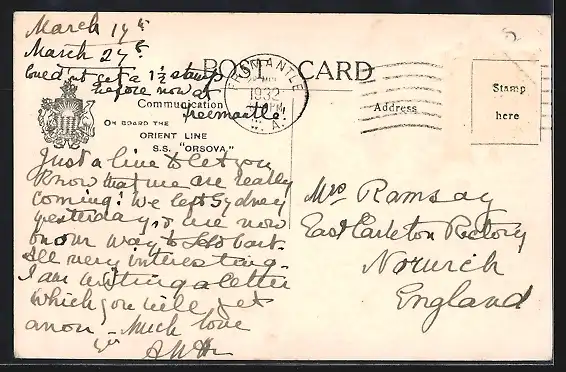 March 19th
March 27th
Could'nt get a 1½ stamp
before now at
freemantle
POST CARD
Communication
Address
Stamp
here
FREMANTLE
1932
W. A.
ON BOARD THE
ORIENT LINE
S.S. "ORSOVA."
Just a line to let you
know that we are really
coming! We left Sydney
yesterday, & are now
on our way to Hobart.
All very interesting.
I am writing a letter
which you will get
anon - Much love
Mrs Ramsay
East Carleton Rectory
Norwich
England